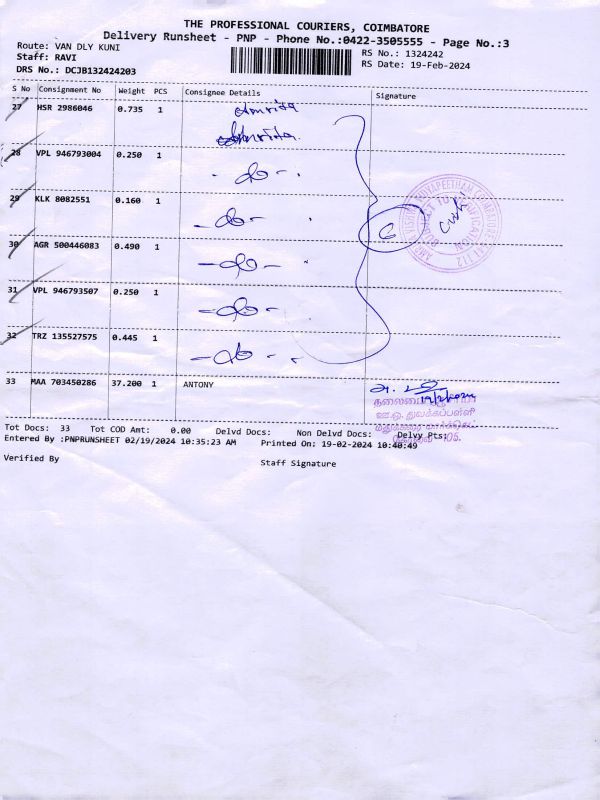 THE PROFESSIONAL COURIERS, COIMBATORE
Delivery Runsheet - PNP - Phone No.:0422-3505555 - Page No.:3
Route: VAN DLY KUNI
RS No.: 1324242
Staff: RAVI
RS Date: 19-Feb-2024
DRS No.: DCJB132424203
S No Consignment No Weight PCS Consignee Details Signature
27 HSR 2986046 0.735 1 Amrita
Amrita
28 VPL 946793004 0.250 1
29 KLK 8082551 0.160 1
6
30 AGR 500446083 0.490 1
31 VPL 946793507 0.250 1
32 TRZ 135527575 0.445 1
33 MAA 703450286 37.200 1 ANTONY
19/2/2024
ஊ.ஒ. துவக்கப்பள்ளி
Tot Docs: 33 Tot COD Amt: 0.00 Delvd Docs: Non Delvd Docs: Delvy Pts:
Entered By :PNPRUNSHEET 02/19/2024 10:35:23 AM Printed On: 19-02-2024 10:40:49
Verified By Staff Signature